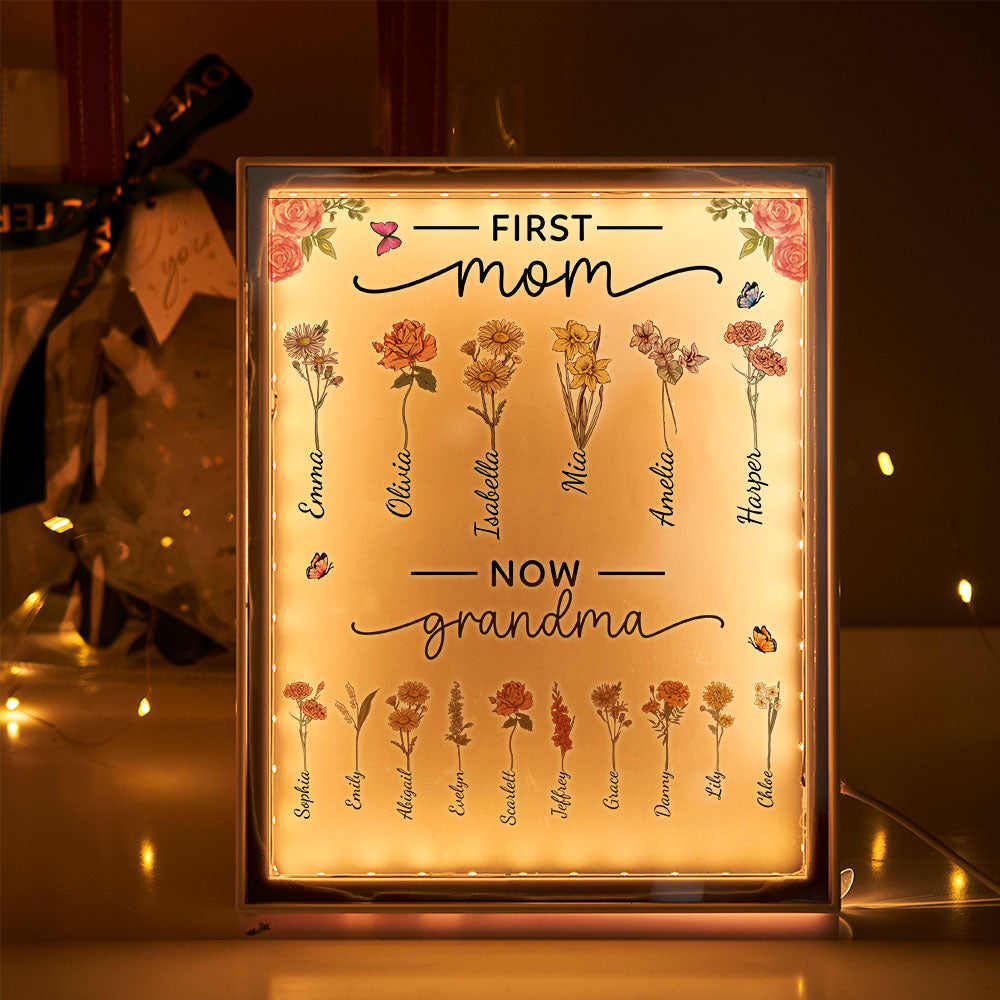 FIRST
mom
Emma Olivia Isabella Mia Amelia Harper
NOW
grandma
Sophia Emily Abigail Evelyn Scarlett Jeffrey Grace Danny Lily Chloe
for
you